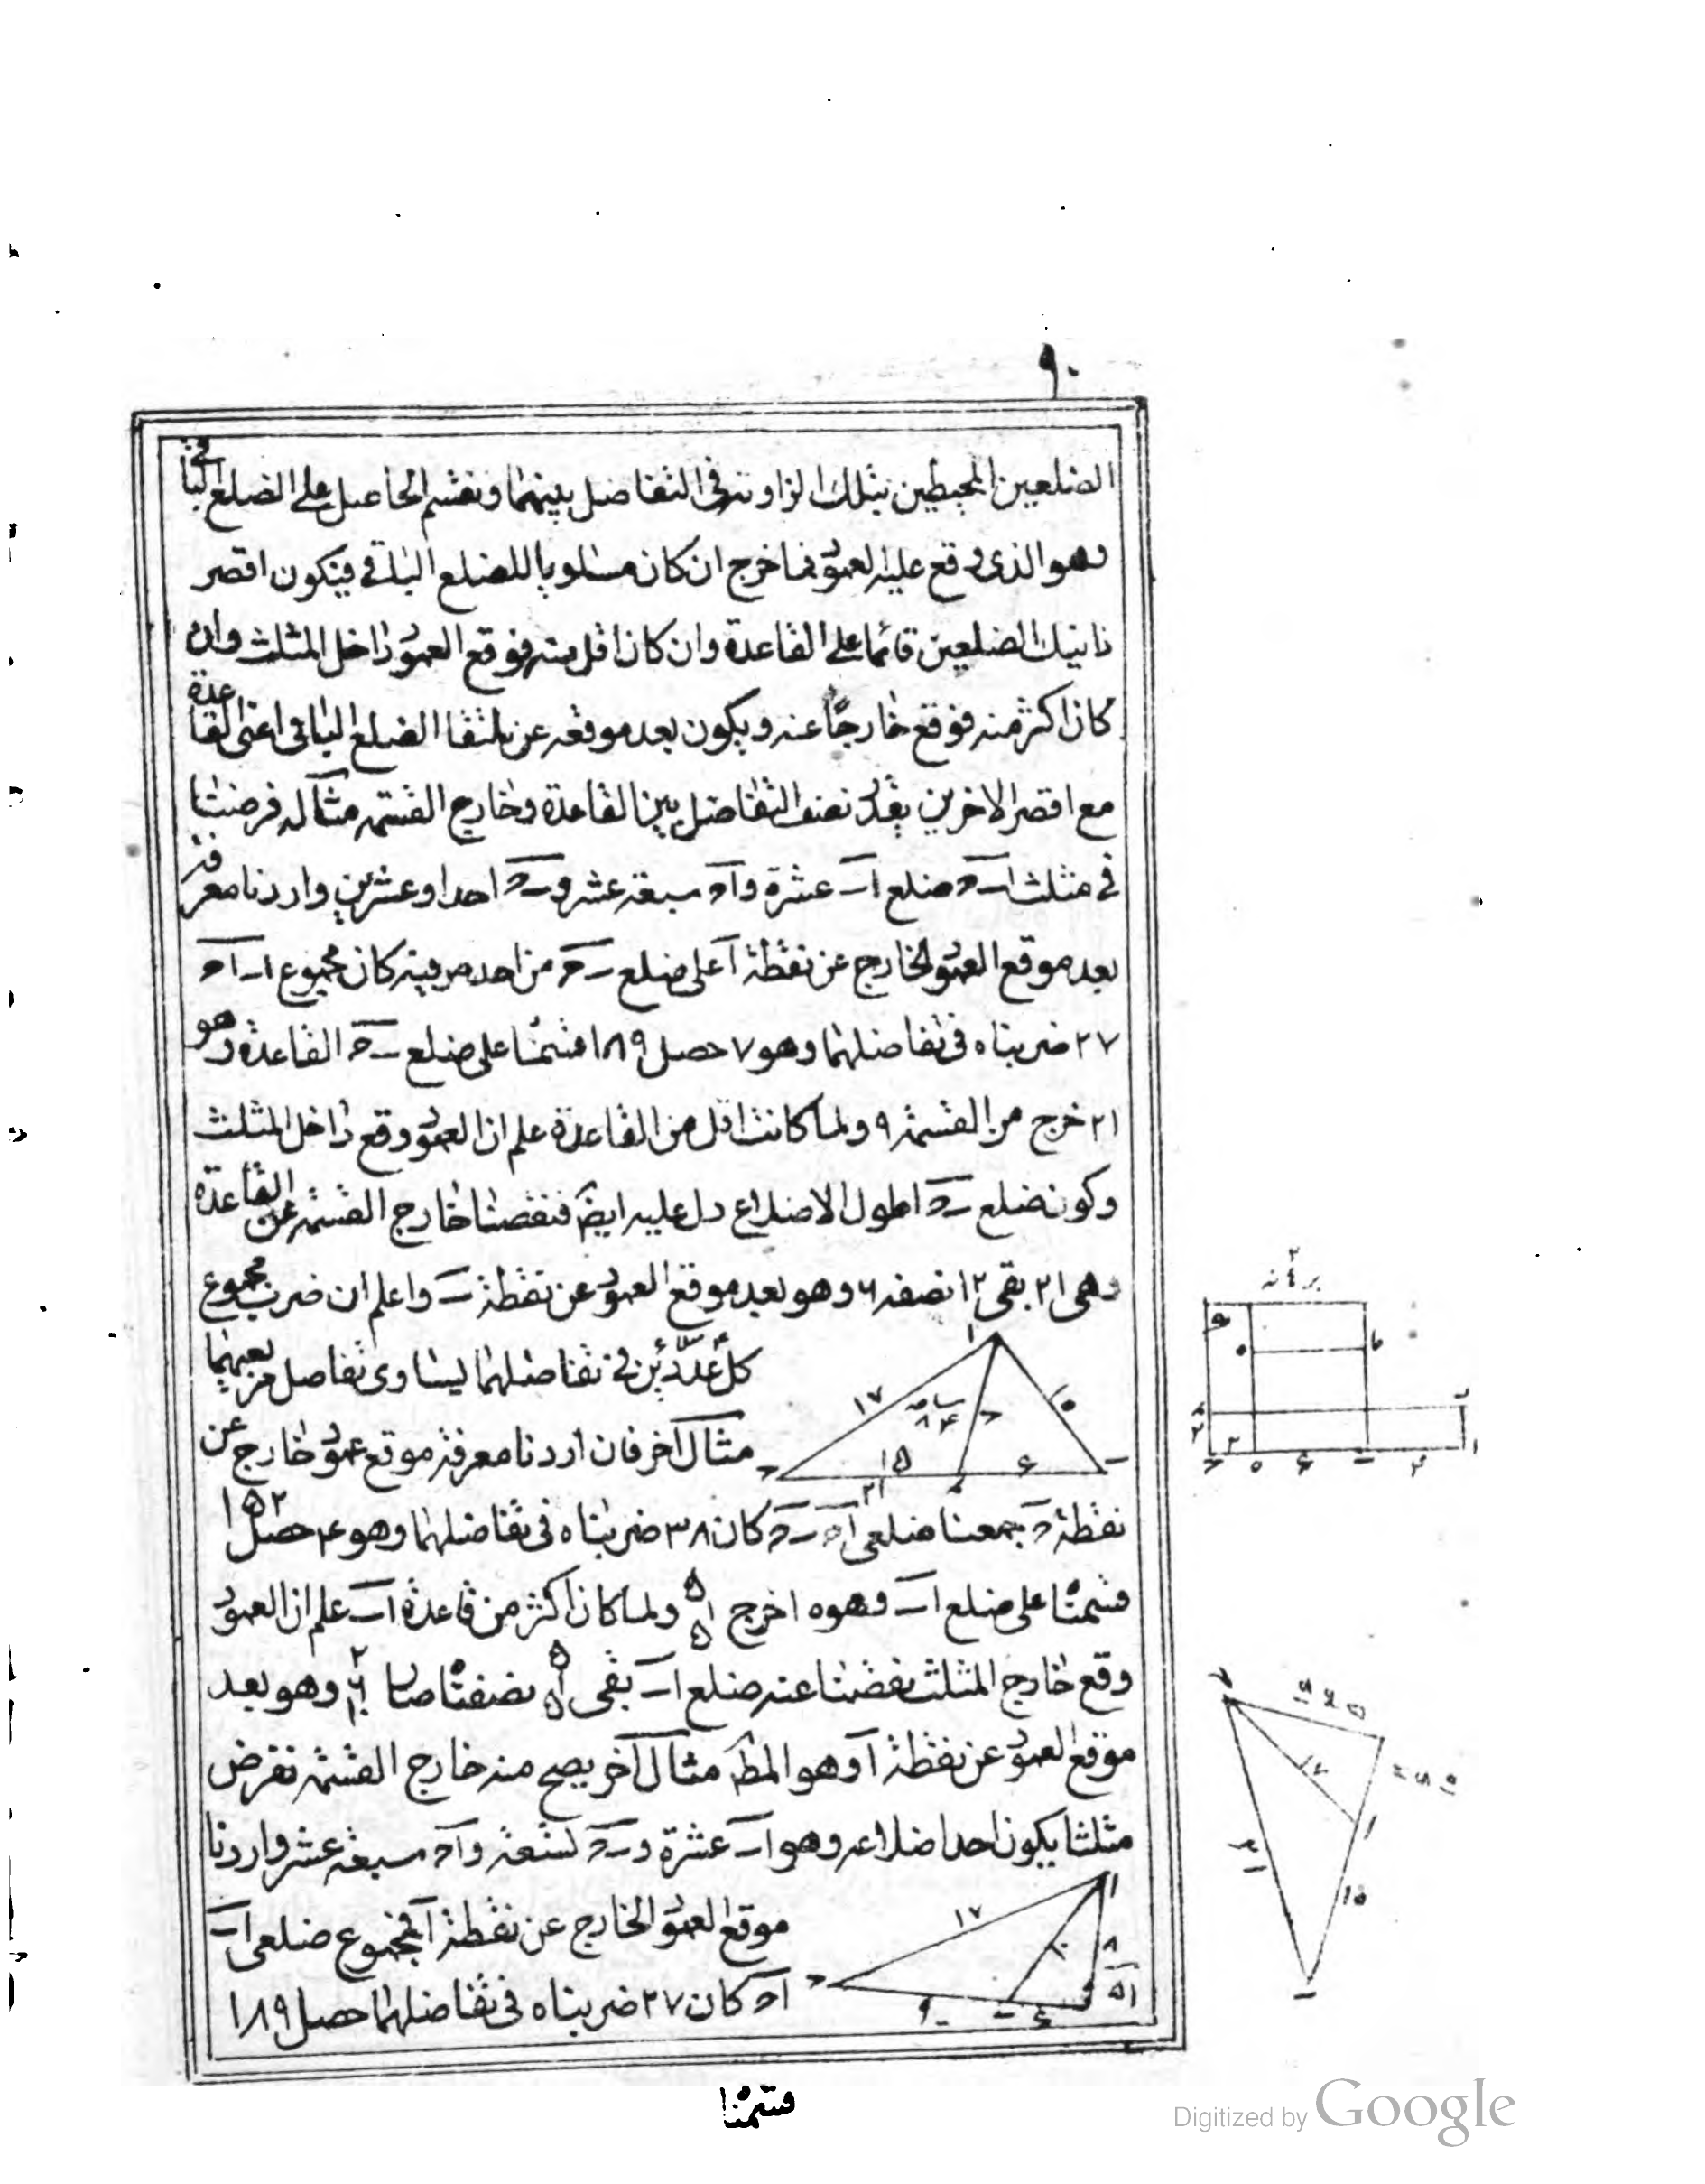 ٩٠
الضلعين المحيطين بتلك الزاوية فى التفاضل بينهما ونقسم الحاصل على الضلع الباقى
وهو الذى وقع عليه العمود فما خرج ان كان مساويا للضلع الباقى فيكون اقصر
ذانيك الضلعين قائما على القاعدة وان كان اقل منه فوقع العمود داخل المثلث وان
كان اكثر منه فوقع خارجًا عنه ويكون بعد موقعه عن ملتقا الضلع الباقى اعنى القاعدة
مع اقصر الاخرين بقدر نصف التفاضل بين القاعدة وخارج القسمة مثاله فرضنا
فى مثلث اٮح ضلع اٮ عشرة واح سبعة عشر وٮح احدا وعشرين واردنا معرفة
بعد موقع العمود الخارج عن نقطة آ على ضلع ٮح من احد طرفيه كان مجموع اٮ اح
٢٧ ضربناه فى تفاضلهما وهو ٧ حصل ١٨٩ قسمنا على ضلع ٮح القاعدة وهو
٢١ خرج من القسمة ٩ ولما كانت اقل من القاعدة علم ان العمود وقع داخل المثلث
وكون ضلع ٮح اطول الاضلاع دل عليه ايضً فنقصنا خارج القسمة عن القاعدة
وهى ٢١ بقى ١٢ نصفه ٦ وهو بعد موقع العمود عن نقطة ٮ واعلم ان ضرب مجموع
كل عددين فى تفاضلهما ليساوى تفاضل مربعيهما
مثال آخر فان اردنا معرفة موقع عمود خارج عن
نقطة ح جمعنا ضلعى اح ٮح كان ٣٨ ضربناه فى تفاضلهما وهو ۴ حصل ١۵٢
قسمنا على ضلع اٮ وهو ١٠ خرج ولما كان اكثر من قاعدة اٮ علم ان العمود
وقع خارج المثلث نقصنا عنه ضلع اٮ بقى نصفنا صار وهو بعد
موقع العمود عن نقطة آ وهو المط مثال آخر يصح منه خارج القسمة نفرض
مثلثا يكون احد اضلاعه وهو اٮ عشرة وٮح تسعة واح سبعة عشر واردنا
موقع العمود الخارج عن نقطة آ فمجموع ضلعى اٮ
اح كان ٢٧ ضربناه فى تفاضلهما حصل ١٨٩
قسمنا
Digitized by Google